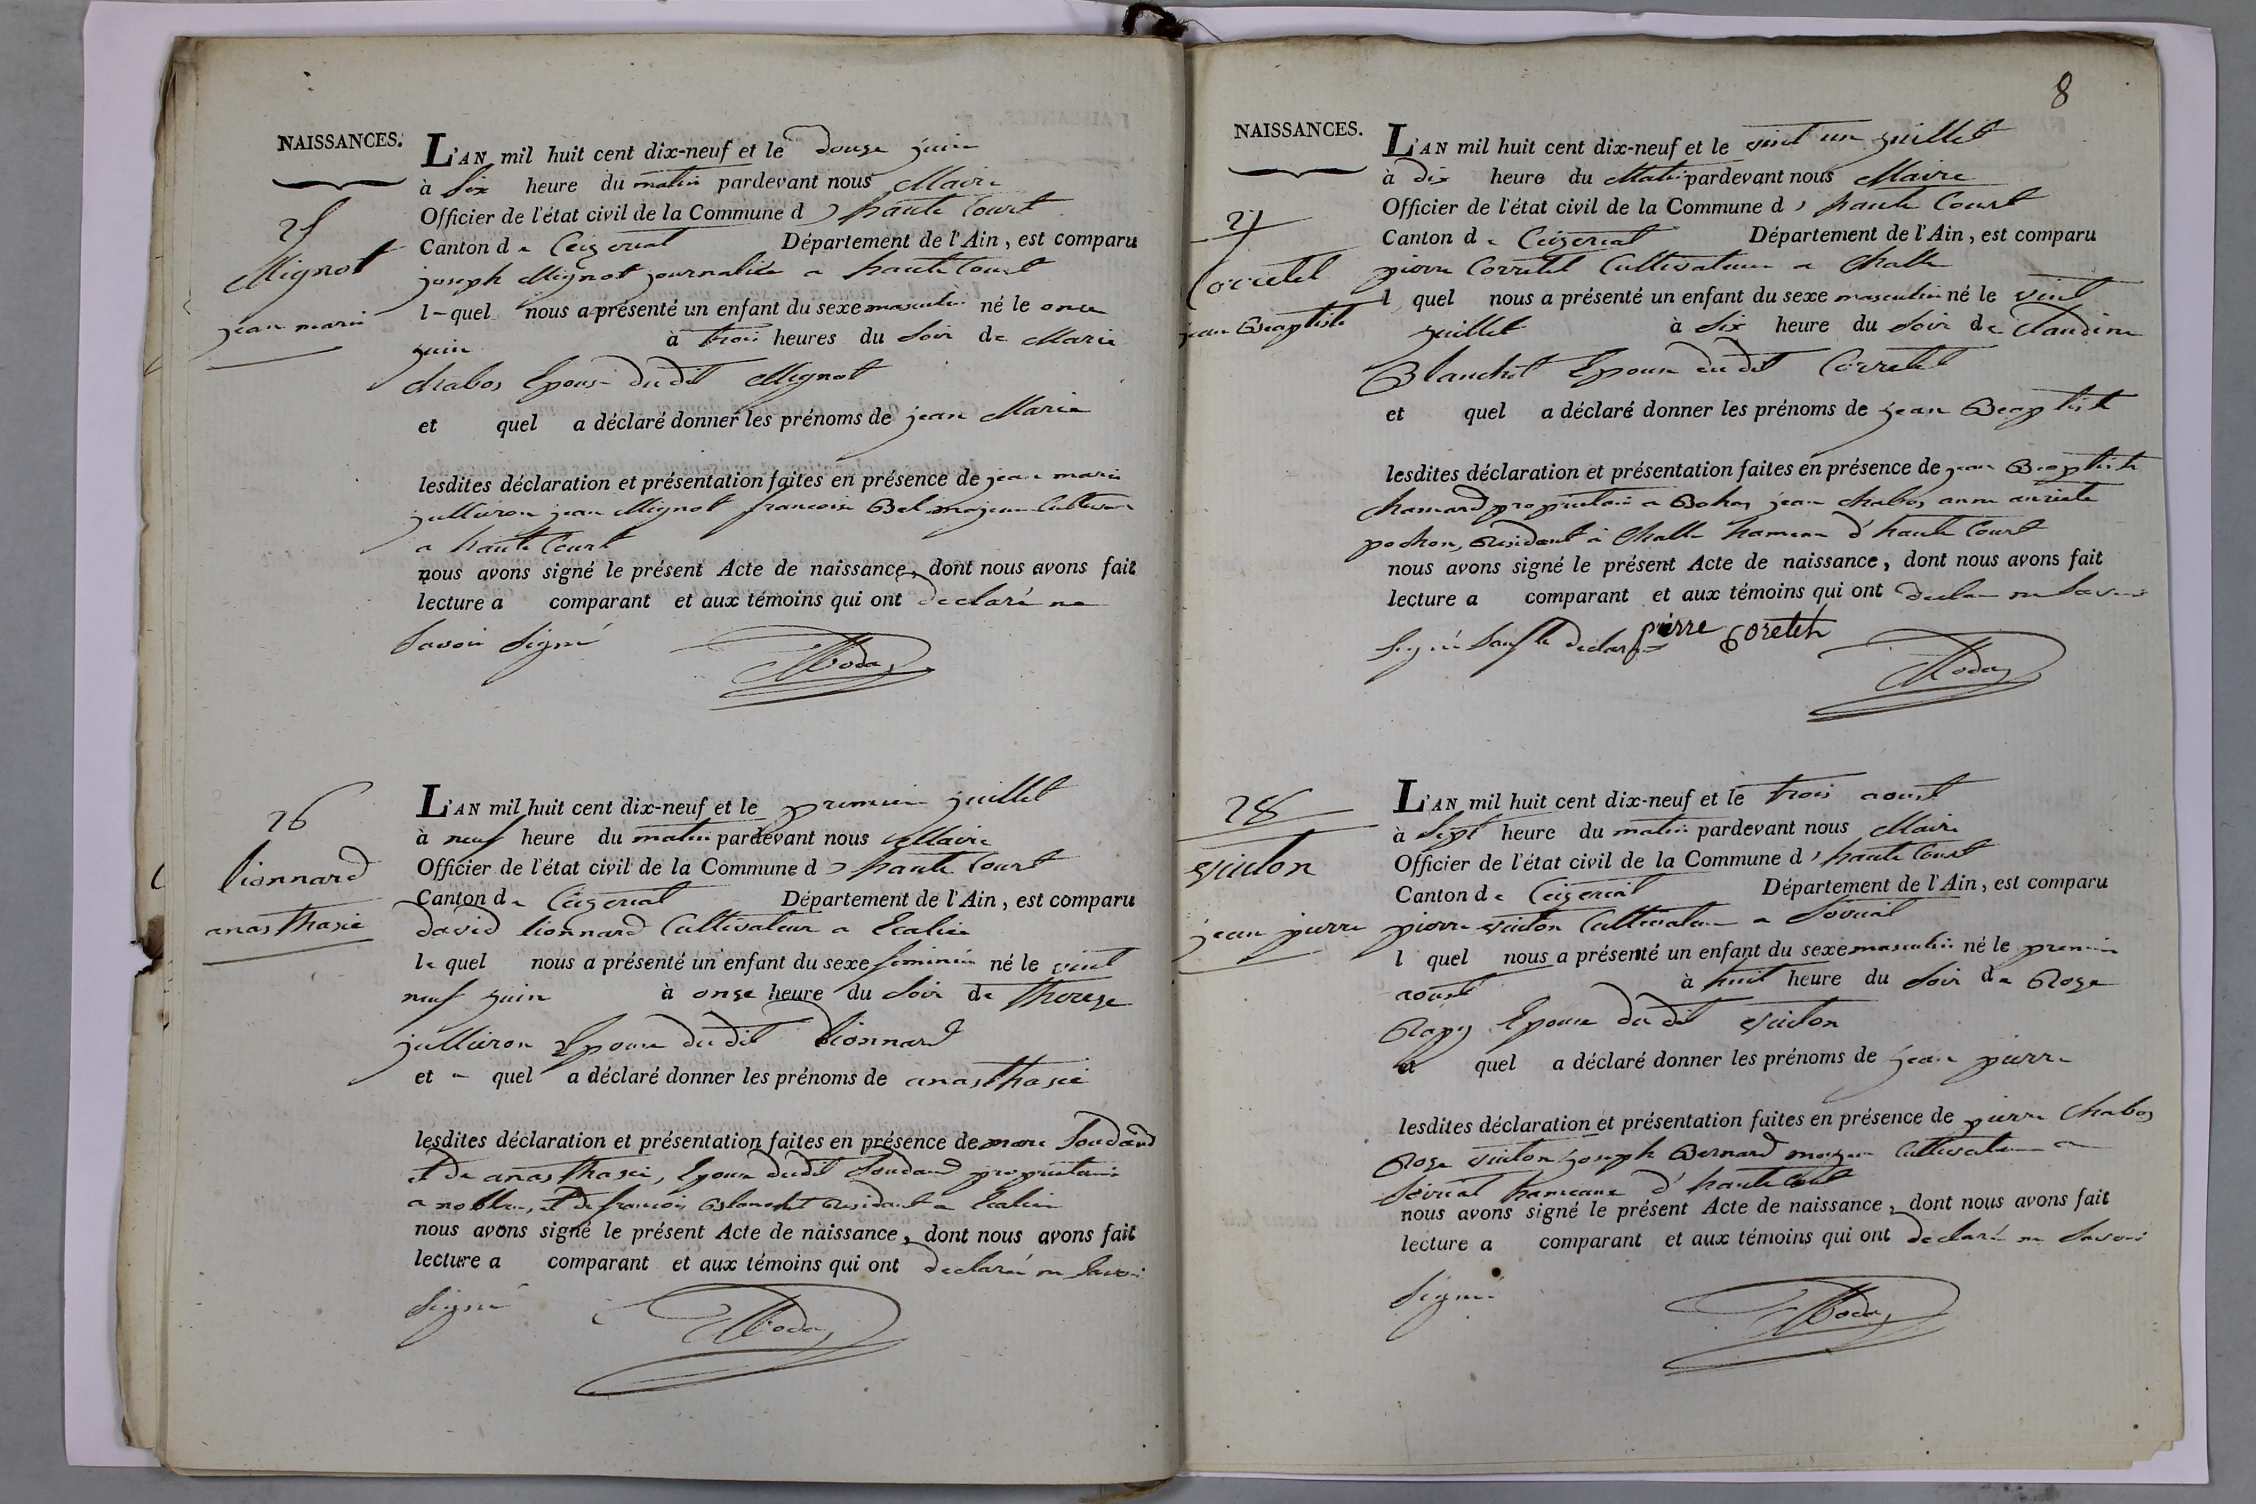 NAISSANCES.
25
Mignot
jean marie
L'AN mil huit cent dix-neuf et le douze juin
à Six heure du matin pardevant nous Maire
Officier de l'état civil de la Commune d haute Court
Canton de Ceizeriat Département de l'Ain, est comparu
joseph Mignot journalier a haute Court
le quel nous a présenté un enfant du sexe masculin né le once
juin à trois heures du Soir de Marie
chabos Epouse du dit Mignot
et quel a déclaré donner les prénoms de jean Marie
lesdites déclaration et présentation faites en présence de jean marie
jullieron jean Mignot francois Bel
a haute Court
nous avons signé le présent Acte de naissance, dont nous avons fait
lecture a comparant et aux témoins qui ont declaré ne
Savoir Signé
26
lionnard
anasthasie
L'AN mil huit cent dix-neuf et le premier juillet
à neuf heure du matin pardevant nous Maire
Officier de l'état civil de la Commune d haute Court
Canton de Ceizeriat Département de l'Ain, est comparu
david lionnard Cultivateur a
le quel nous a présenté un enfant du sexe feminin né le vint
neuf juin à onze heure du Soir de thereze
jullieron Epouse du dit lionnard
et quel a déclaré donner les prénoms de anasthasie
lesdites déclaration et présentation faites en présence de marc Soudard
et de anasthasie, Epouse dudit Soudard proprietaire
a et de francois Blanchet Residant a
nous avons signé le présent Acte de naissance, dont nous avons fait
lecture a comparant et aux témoins qui ont declaré ne Savoir
Signé
8
NAISSANCES.
27
Corretel
jean Beaptiste
L'AN mil huit cent dix-neuf et le vint un juillet
à dix heure du Matin pardevant nous Maire
Officier de l'état civil de la Commune d haute Court
Canton de Ceizeriat Département de l'Ain, est comparu
pierre Corretel Cultivateur a Challe
l quel nous a présenté un enfant du sexe masculin né le vint
juillet à Six heure du Soir de Claudine
Blanchet Epouse du dit Corretel
et quel a déclaré donner les prénoms de jean Beaptiste
lesdites déclaration et présentation faites en présence de jean Beaptiste
chanard proprietaire a Bohas jean chabos anne
pochon, Residant à Challe hameau d'haute Court
nous avons signé le présent Acte de naissance, dont nous avons fait
lecture a comparant et aux témoins qui ont declaré ne Savoir
Signé Sauf le declarant pierre coretet
28
vuiton
jean pierre
L'AN mil huit cent dix-neuf et le trois aoust
à Sept heure du matin pardevant nous Maire
Officier de l'état civil de la Commune d haute Court
Canton de Ceizeriat Département de l'Ain, est comparu
pierre vuiton Cultivateur a
l quel nous a présenté un enfant du sexe masculin né le premier
aoust à huit heure du Soir de Roze
Rapy Epouse du dit vuiton
et quel a déclaré donner les prénoms de jean pierre
lesdites déclaration et présentation faites en présence de pierre Chabos
Roze vuiton joseph Bernard Cultivateur a
hameaux d'haute Court
nous avons signé le présent Acte de naissance, dont nous avons fait
lecture a comparant et aux témoins qui ont declaré ne Savoir
Signé